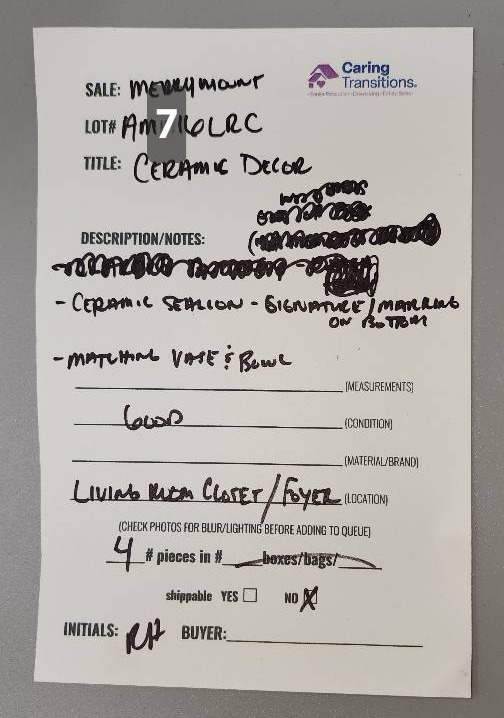 Caring
Transitions®
SALE: MERRYMOUNT
LOT# AM 7 16LRC
TITLE: CERAMIC DECOR
DESCRIPTION/NOTES:
- CERAMIC SEALION - SIGNATURE/MARKING
ON BOTTOM
- MATCHING VASE & BOWL
(MEASUREMENTS)
GOOD (CONDITION)
(MATERIAL/BRAND)
LIVING ROOM CLOSET/FOYER (LOCATION)
(CHECK PHOTOS FOR BLUR/LIGHTING BEFORE ADDING TO QUEUE)
4 # pieces in # boxes/bags/
shippable YES NO X
INITIALS: RH BUYER: